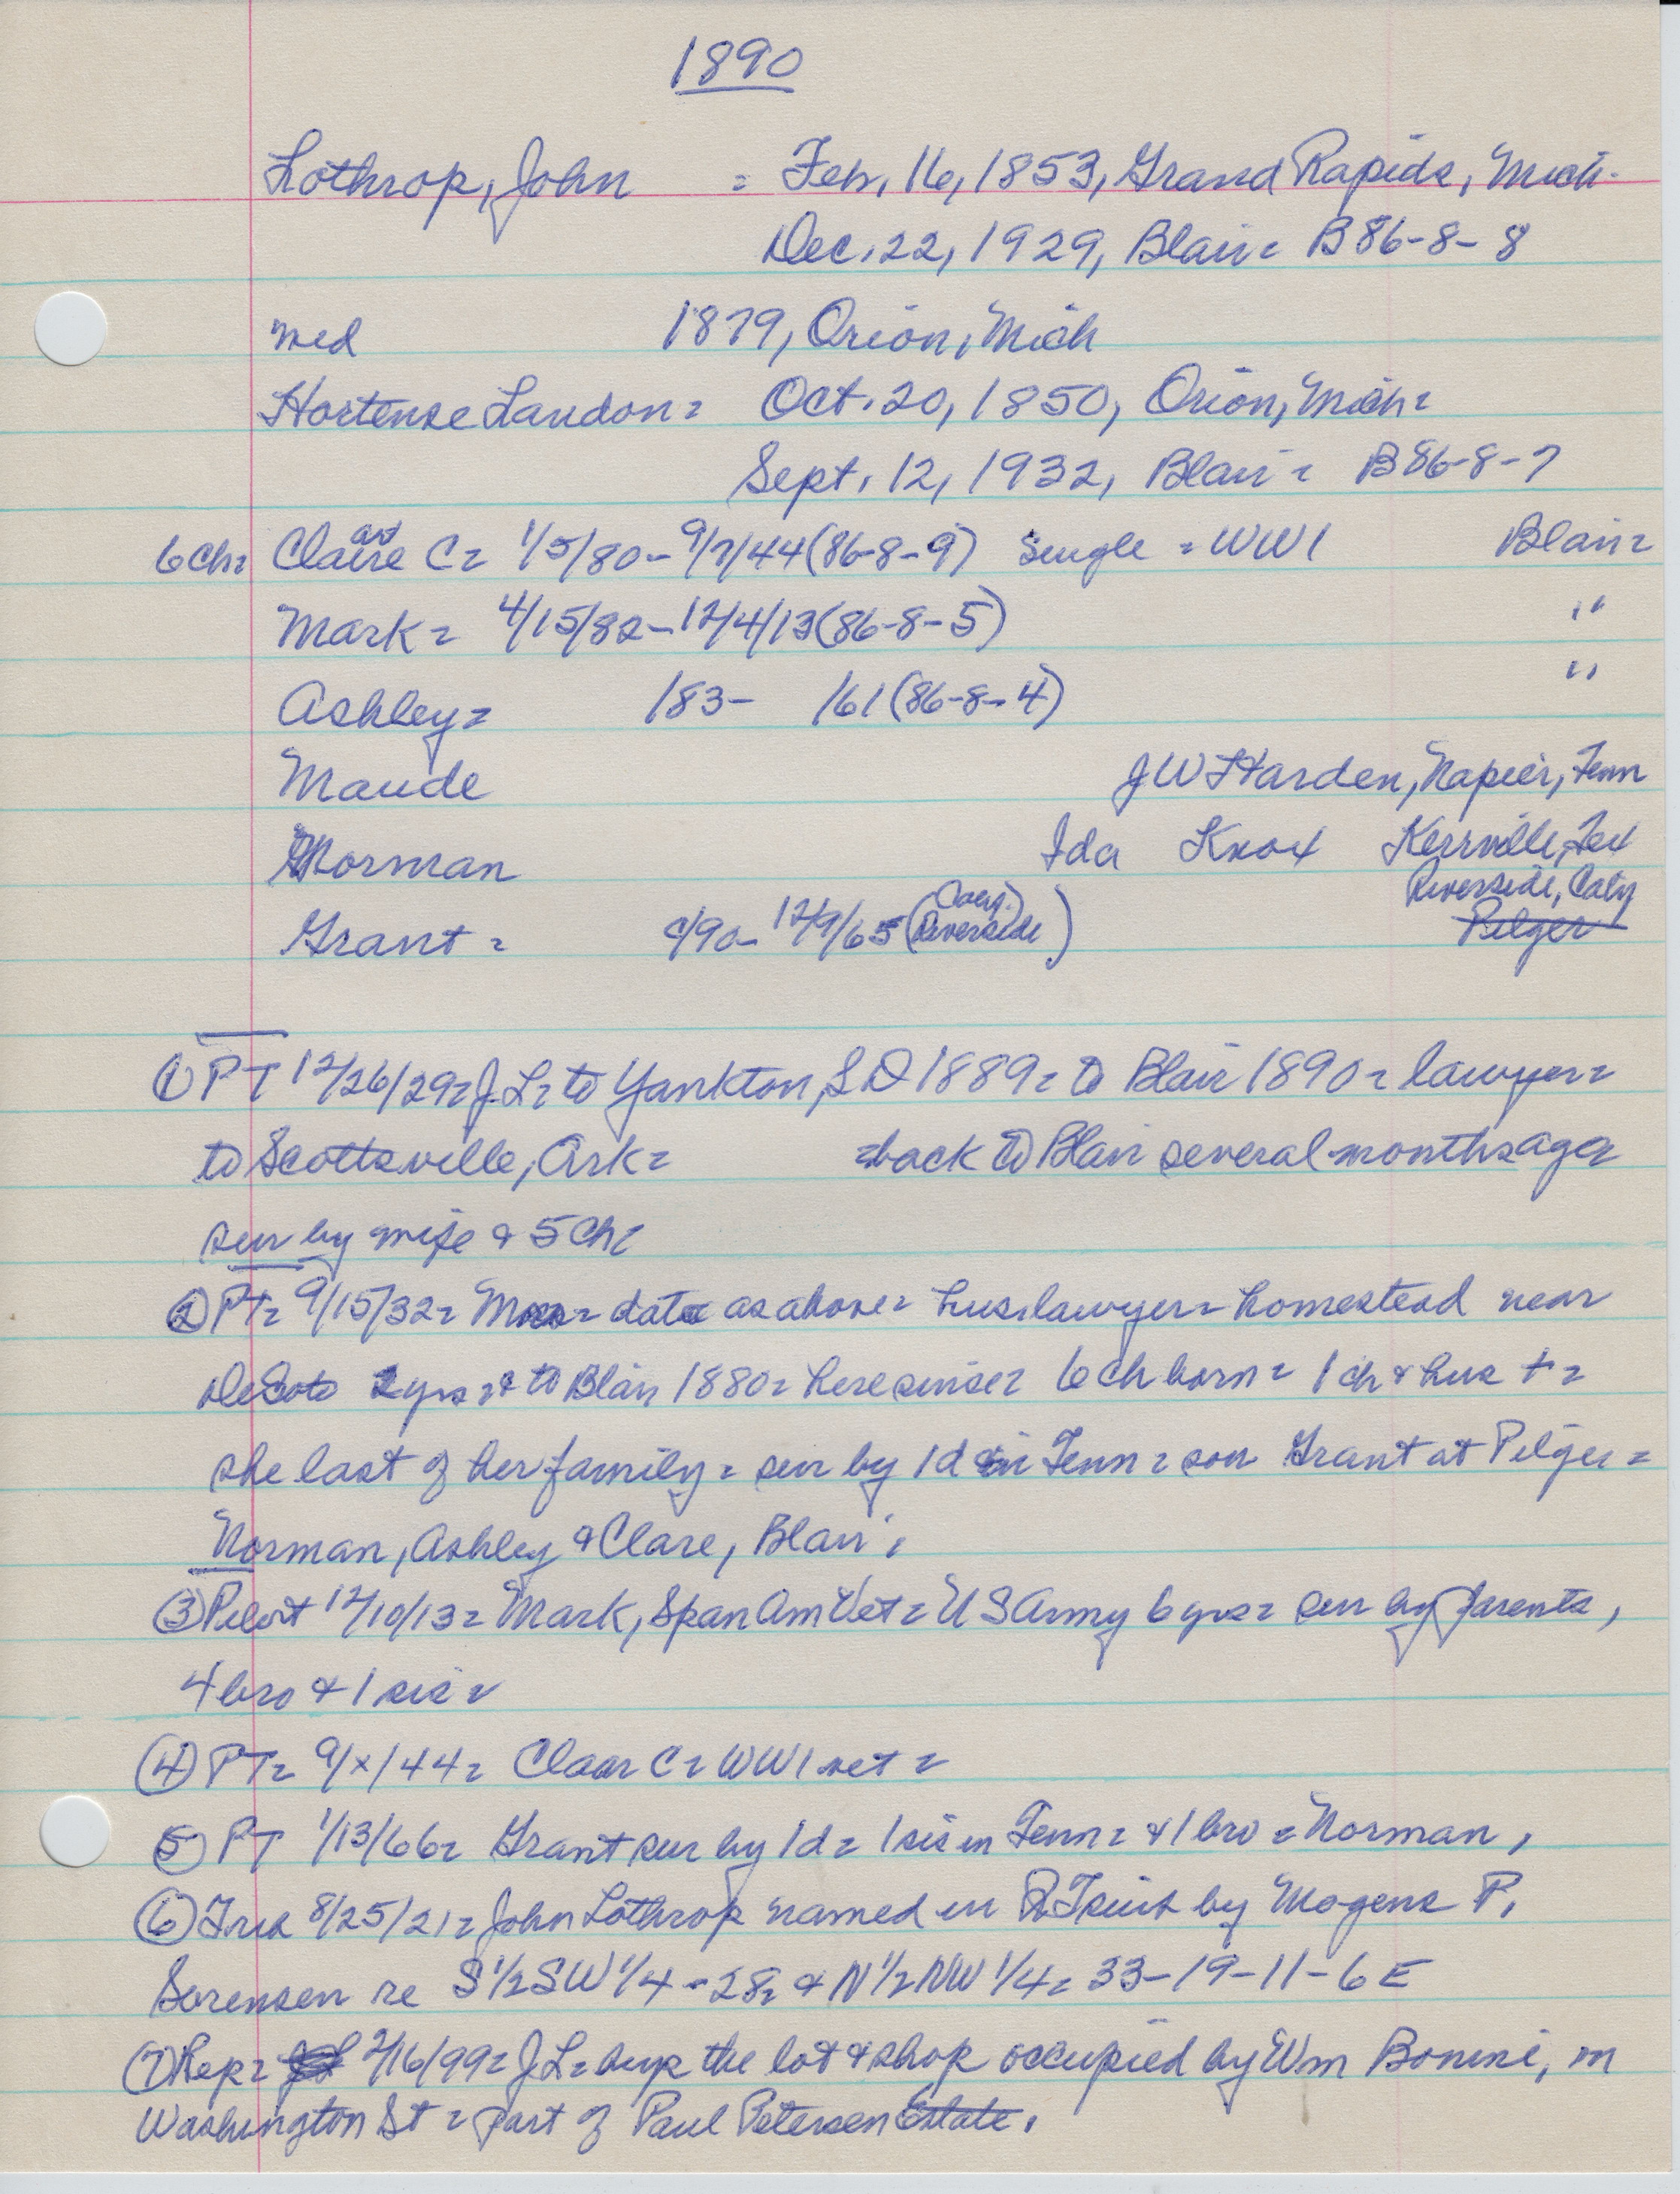 1890
Lothrop, John = Feb. 16, 1853, Grand Rapids, Mich.
Dec. 22, 1929, Blair = B86-8-8
med 1879, Orion, Mich
Hortense Landon = Oct. 20, 1850, Orion, Mich =
Sept. 12, 1932, Blair = B86-8-7
6 ch = Claire C = 1/5/80 - 9/7/44 (86-8-9) Single = WW1 Blair =
ar
Mark = 4/15/82 - 12/4/13 (86-8-5) "
Ashley = /83 - /61 (86-8-4) "
Maude J W Harden, Napier, Tenn
Norman Ida Knox Kerrville, Tex
Riverside, Calif
Grant = 9/90 - 12/9/65 (Riverside) Pilger
① PT 12/26/29 = J. L = to Yankton, S D 1889 = to Blair 1890 = lawyer =
to Scottsville, Ark = = back to Blair several months ago =
sur by wife & 5 ch =
② PT = 9/15/32 = Mrs = data as above = hus. lawyer = homestead near
DeSoto 2 yrs = & to Blair 1880 = here since = 6 ch born = 1 ch & hus + =
she last of her family = sur by 1 d in Tenn = son Grant at Pilger =
Norman, Ashley & Clare, Blair.
③ Pilot 12/10/13 = Mark, Span Am Vet = U S Army 6 yrs = sur by parents,
4 bro & 1 sis =
④ PT = 9/x/44 = Claar C = WW1 vet =
⑤ PT 1/13/66 = Grant sur by 1 d = 1 sis in Tenn = & 1 bro = Norman,
⑥ 8/25/21 = John Lothrop named in by Mogens P.
Sorensen re S 1/2 SW 1/4 - 28 = & N 1/2 NW 1/4 = 33-19-11-6 E
⑦ Rep = 2/16/99 = J L = buys the lot & shop occupied by Wm Bonine, on
Washington St = part of Paul Petersen Estate.